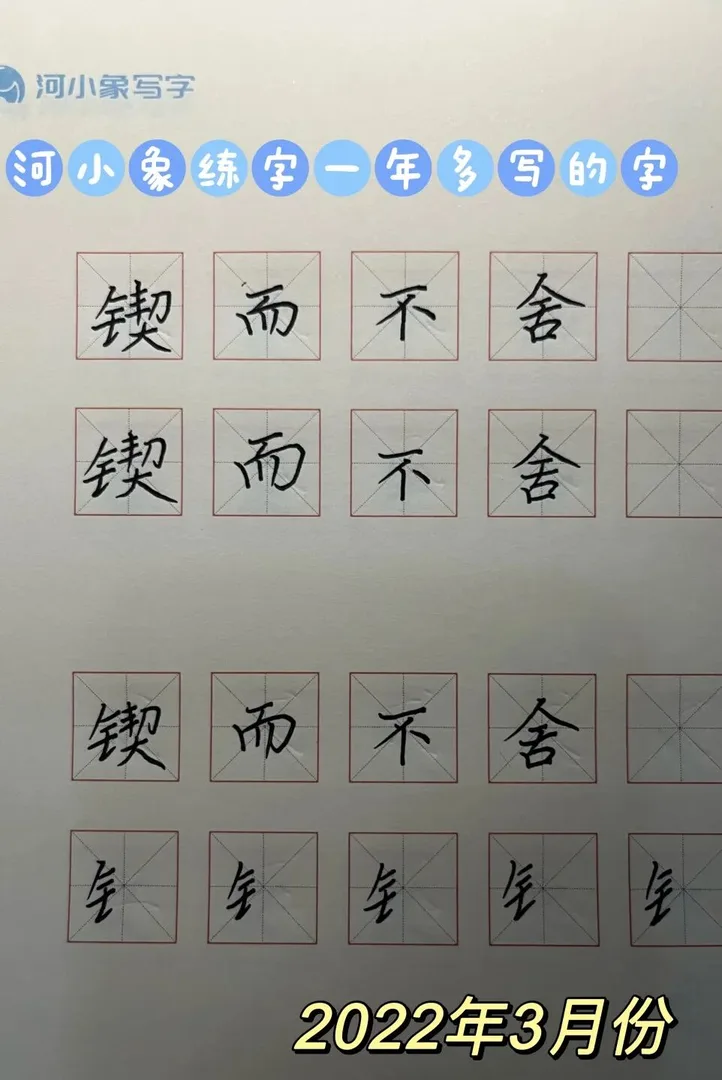 河小象写字
河小象练字一年多写的字
锲而不舍
锲而不舍
锲而不舍
钅钅钅钅钅
2022年3月份